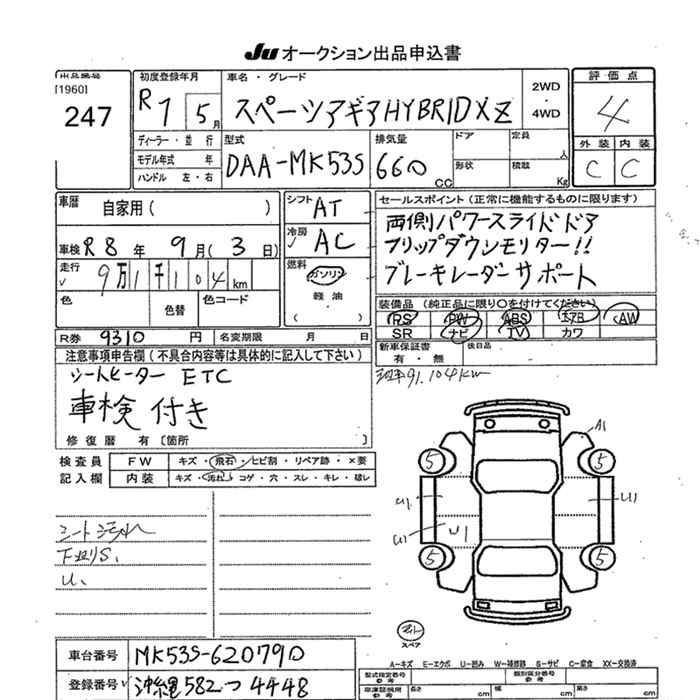 JU オークション出品申込書
出品番号 初度登録年月 車名・グレード 2WD ・ 4WD 評価点
[1960]
247
R 1 5月
スペーシアギアHYBRIDXZ
4
外装 内装
C C
ディーラー・並行
モデル年式 年
ハンドル 左・右
型式
DAA-MK53S
排気量
660 CC
ドア 定員 人
形状 積載 Kg
車歴 自家用( )
シフト AT
冷房 AC
燃料 ガソリン
軽油
( )
車検 R8年 9月(3日)
走行 9万1千104km
色 色替 色コード
R券 9310円 名変期限 月 日
セールスポイント(正常に機能するものに限ります)
両側パワースライドドア
フリップダウンモニター!!
ブレーキレーダーサポート
装備品(純正品に限り○を付けてください)
RS PW ABS エアB AW
SR ナビ TV カワ
新車保証書 後日品
有・無
91,104km
注意事項申告欄(不具合内容等は具体的に記入して下さい)
シートヒーター ETC
車検 付き
修復歴 有[箇所 ]
検査員 FW キズ・飛石・ヒビ割・リペア跡・×要
記入欄 内装 キズ・汚れ・コゲ・穴・スレ・キレ・破レ
シート汚れ
下廻りS、
U、
A1
5 5
U1 U1
U1 U1
5 5
スペア
車台番号 MK53S-620790
登録番号 沖縄582つ4448
A-キズ E-エクボ U-凹み W-補修跡 S-サビ C-腐食 XX-交換済
型式指定番号 参考 類別区分番号 参考
長さ cm 幅 cm 高さ cm